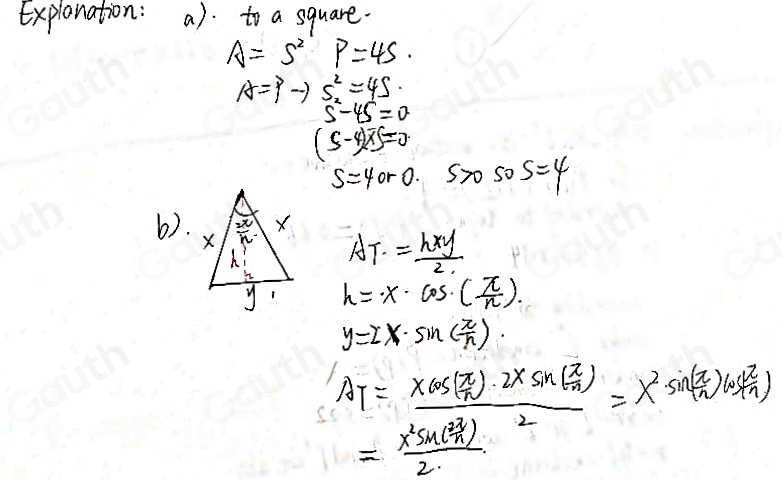 Explanation: a). to a square.
A = S² P = 4S.
A = P → S² = 4S.
S² - 4S = 0
(S-4)×S = 0
S = 4 or 0. S>0 so S = 4
b). x 2π/n x h y
A_T. = h×y/2.
h = x · cos. (π/n).
y = 2x · sin (π/n).
A_T = x cos(π/n) · 2x sin(π/n) / 2 = x² · sin(π/n) cos(π/n)
= x² sin(2π/n) / 2.
Gauth